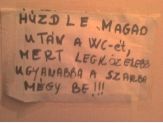 HÚZD LE MAGAD
UTÁN A WC-ét,
MERT LEGKÖZELEBB
UGYANABBA A SZARBA
MÉGY BE!!!